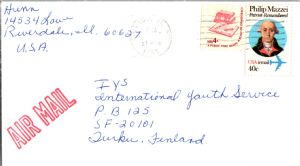 Hunn
14534 Lowe
Riverdale, Ill. 60627
U.S.A.
USA 4c
Philip Mazzei
Patriot Remembered
USA Airmail
40c
AIR MAIL
IYS
International Youth Service
P.B 125
SF-20101
Turku, Finland